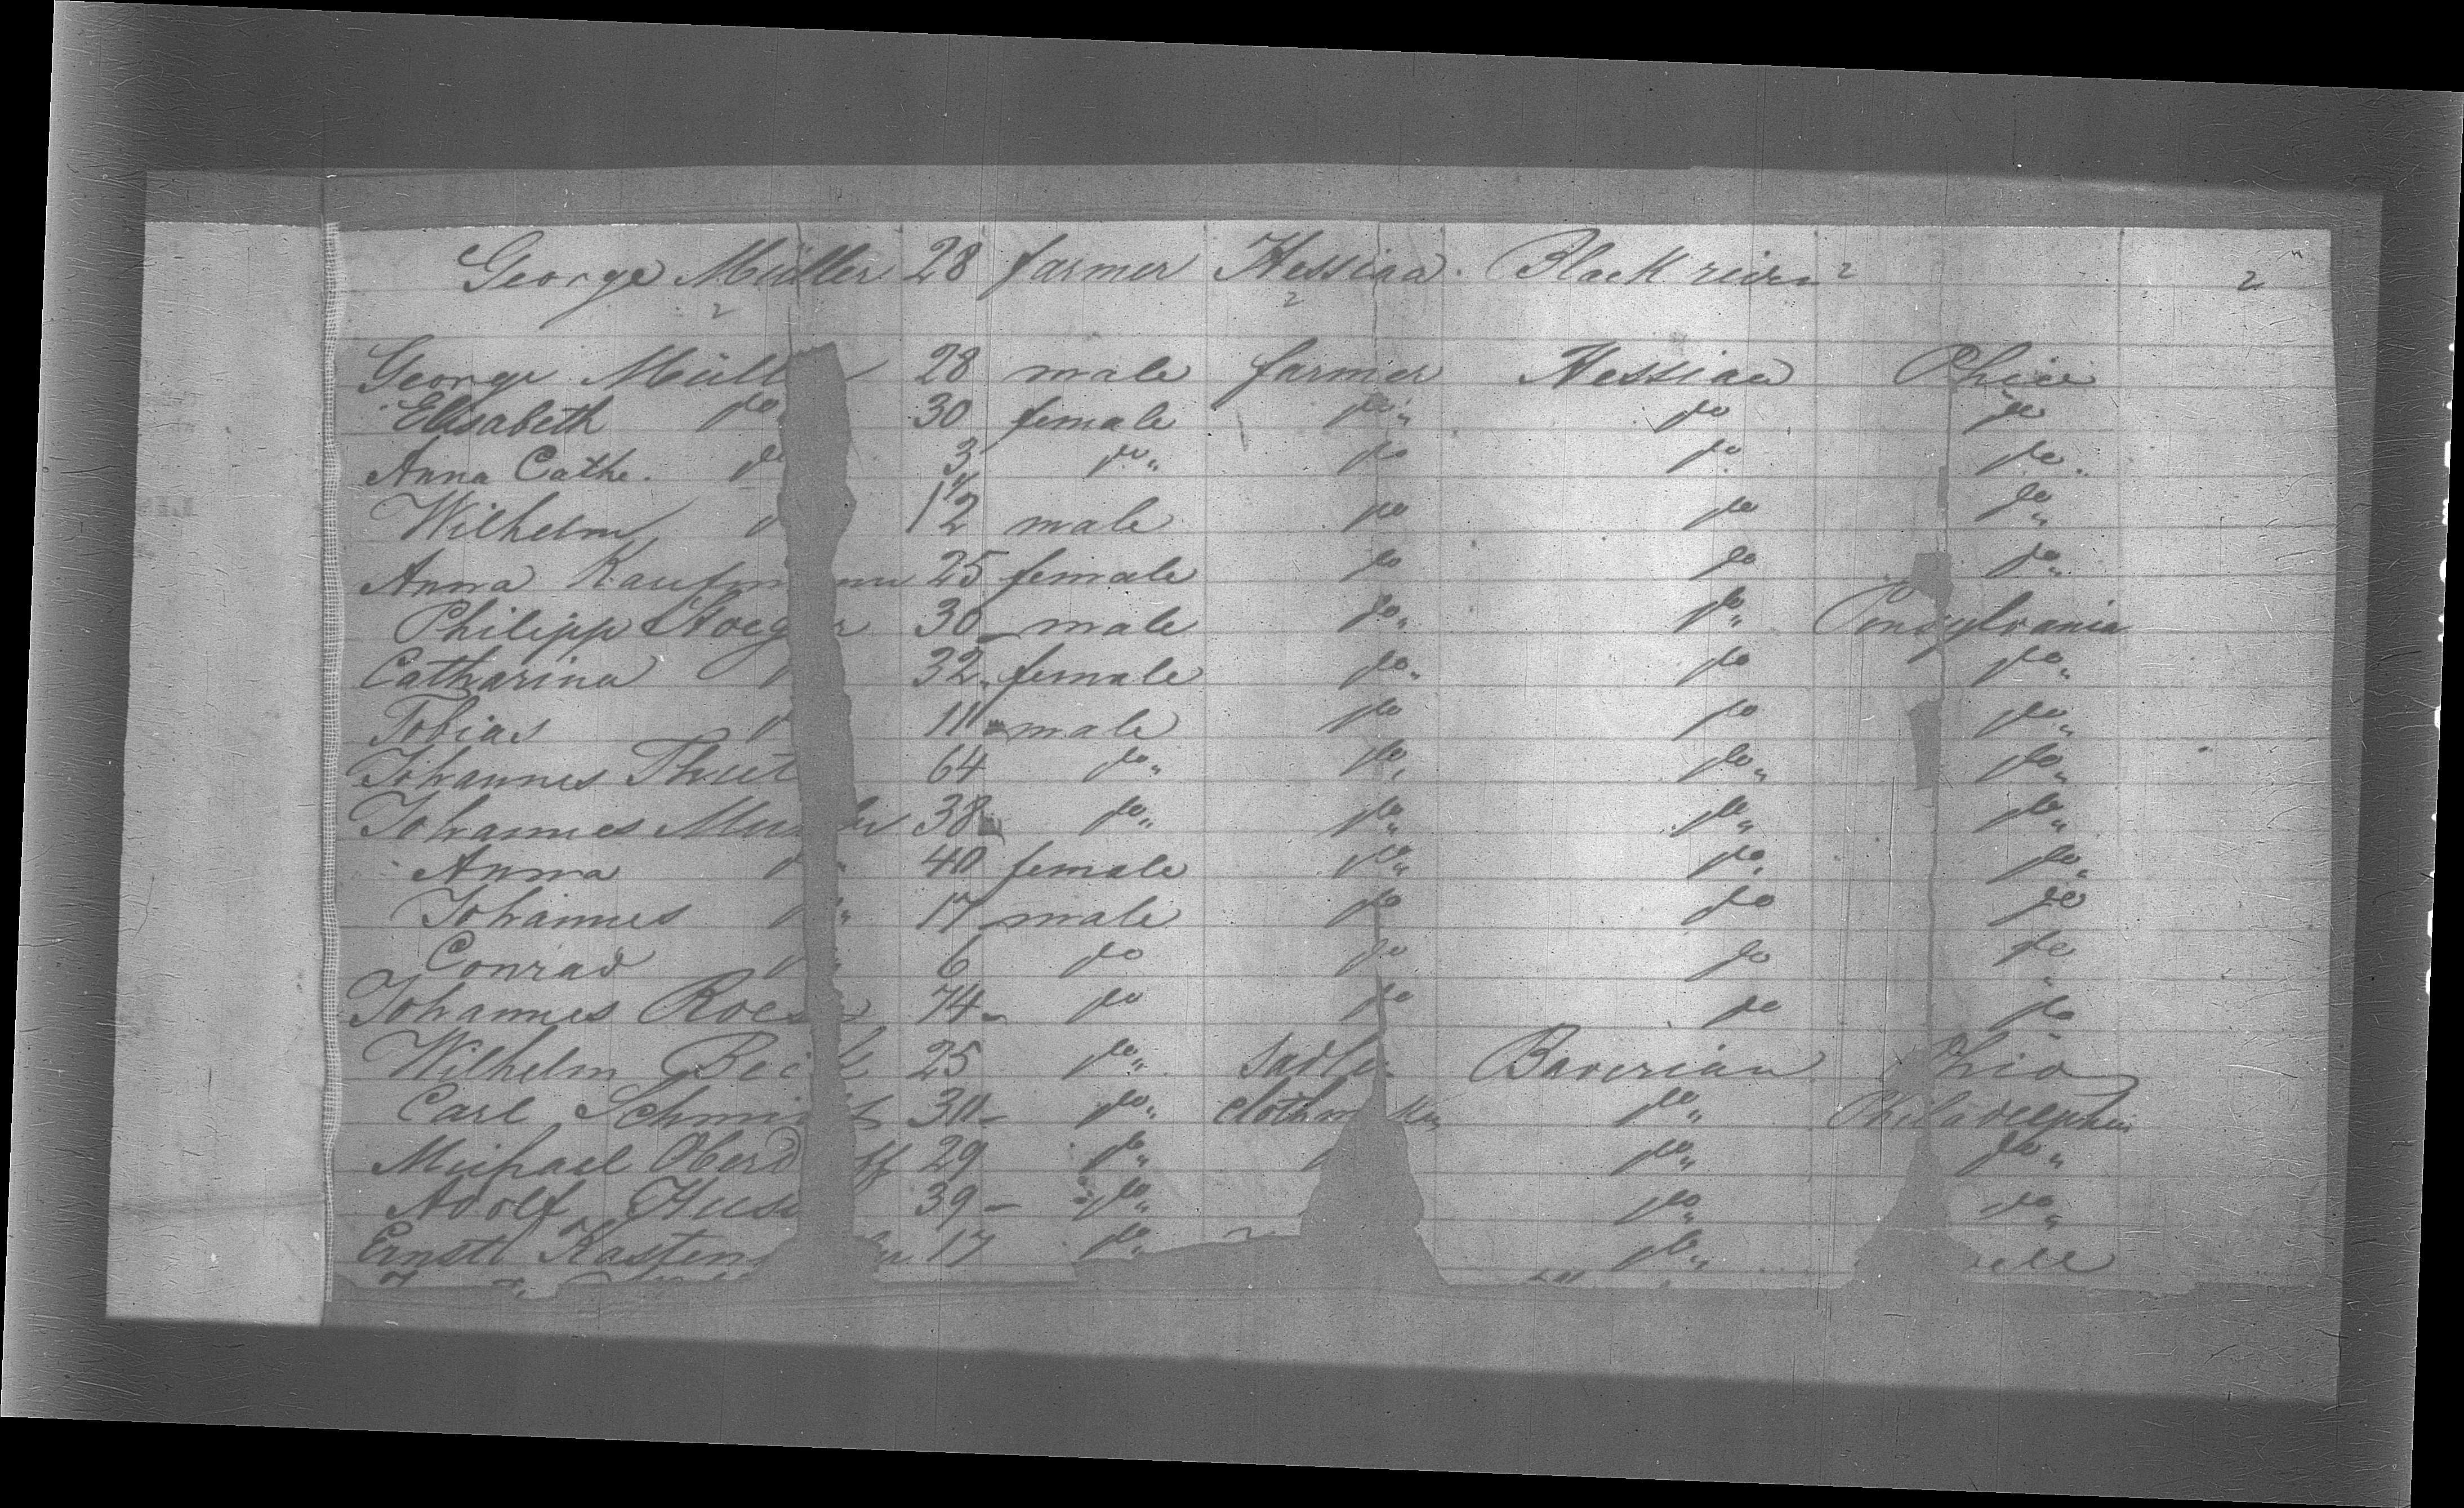 George Müller 28 farmer Hessian. Black river
George Müll 28 male farmer Hessian Ohio
Elisabeth do 30 female do do do
Anna Cathe. do 3 do do do do
Wilhelm 1/2 male do do do
Anna Kaufm nn 25 female do do do
Philipp Hoeg r 30 male do do Pensylvania
Catharina 32 female do do do
Tobias 11 male do do do
Johannes 64 do do do do
Johannes 38 do do do do
Anna 40 female do do do
Johannes 17 male do do do
Conrad 6 do do do do
Johannes Roes 74 do do do do
Wilhelm Be k 25 do Sadle Baverian Ohio
Carl Schmi 30 do cloth m ker do Philadelphia
Michael Oberd ff 29 do do do
Adolf Hus 39 do do do
Ernst Kasten 17 do do